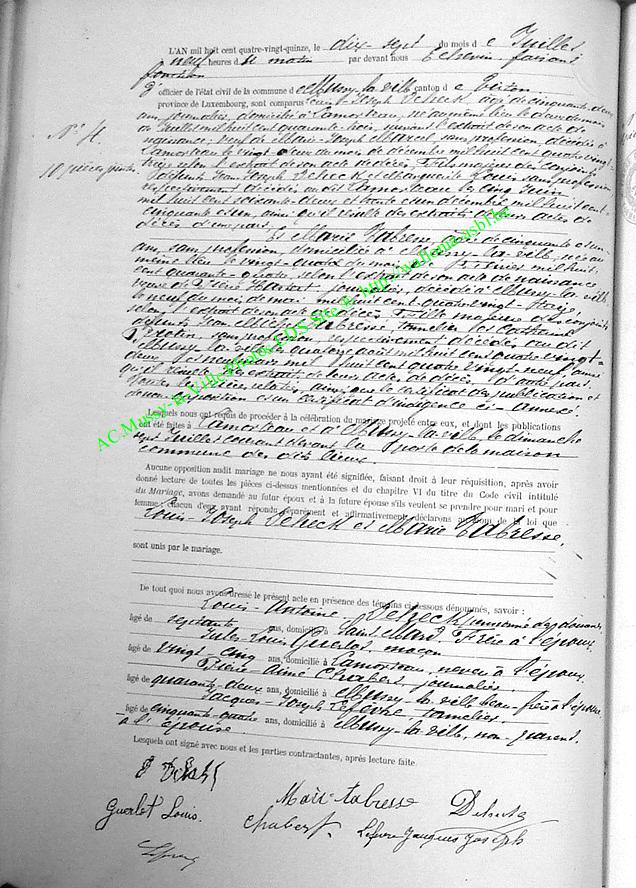 L'AN mil huit cent quatre-vingt-quinze, le dix-sept du mois de Juillet
neuf heures du matin par devant nous Echevin, faisant
fonction
d' officier de l'état civil de la commune de Mussy-la-ville canton de Virton
province de Luxembourg, sont comparus Louis-Joseph Deheck âgé de cinquante-deux
ans, journalier, domicilié à Lamorteau, né au même lieu le deux du mois
de Juillet mil huit cent quarante-trois, suivant l'extrait de son acte de
naissance, veuf de Marie-Joseph Marcel, sans profession, décédée à
Lamorteau le vingt-deux du mois de décembre mil huit cent quatre-vingt
treize, selon l'extrait de son acte de décès. Fils majeur des conjoints
défunts Jean-Joseph Deheck et Marguerite Louis sans profession
respectivement décédés au dit Lamorteau les cinq Juin
mil huit cent soixante-deux et trente et un décembre mil huit cent
cinquante et un, ainsi qu'il résulte des extraits de leurs actes de
décès d'une part.
Et Marie Tabresse, âgée de cinquante et un
ans, sans profession, domiciliée à Mussy-la-ville, née au
même lieu le vingt-quatre du mois de Février mil huit
cent quarante-quatre, selon l'extrait de son acte de naissance
veuve de Pierre décédé à Mussy-la-ville
le neuf du mois de mai mil huit cent quatre-vingt
selon l'extrait de son acte de décès. Fille majeure des conjoints
défunts Jean Tabresse, tonnelier et Catherine
sans profession respectivement décédés au dit
Mussy-la-ville les quatorze août mil huit cent quatre vingt-
deux mil huit cent quatre vingt-neuf, ainsi
qu'il résulte des extraits de leurs actes de décès, d'autre part.
Toutes les pièces relatées, ainsi que le certificat de publication et
un certificat d'indigence ci-annexé.
N° 4.
10 pièces jointes
Lesquels nous ont requis de procéder à la célébration du mariage projeté entre eux, et dont les publications
ont été faites à Lamorteau et à Mussy-la-ville le dimanche
sept Juillet courant devant la porte de la maison
commune des dits lieux.
Aucune opposition audit mariage ne nous ayant été signifiée, faisant droit à leur réquisition, après avoir
donné lecture de toutes les pièces ci-dessus mentionnées et du chapitre VI du titre du Code civil intitulé
du Mariage, avons demandé au futur époux et à la future épouse s'ils veulent se prendre pour mari et pour
femme, chacun d'eux ayant répondu séparément et affirmativement, déclarons au nom de la loi que
Louis-Joseph Deheck et Marie Tabresse.
sont unis par le mariage.
De tout quoi nous avons dressé le présent acte en présence des témoins ci-dessous dénommés, savoir :
Louis-Antoine Deheck, pensionné des douanes
âgé de septante ans, domicilié à Saint-Mard, Frère à l'époux.
Jules-Louis Guerlot, maçon
âgé de vingt-cinq ans, domicilié à Lamorteau, neveu à l'époux.
Pierre-Aimé Chabert, journalier
âgé de quarante-deux ans, domicilié à Mussy-la-ville, beau-frère à l'épouse.
Jacques-Joseph Lefevre, tonnelier
âgé de cinquante-quatre ans, domicilié à Mussy-la-ville, non-parent
à l'épouse.
Lesquels ont signé avec nous et les parties contractantes, après lecture faite.
Marie tabresse
Guerlot Louis.
Chabert
Lefevre Jacques Joseph
AC.Mussy-la-Ville-Photos EDS-Site © http://wafloma-asbl.be